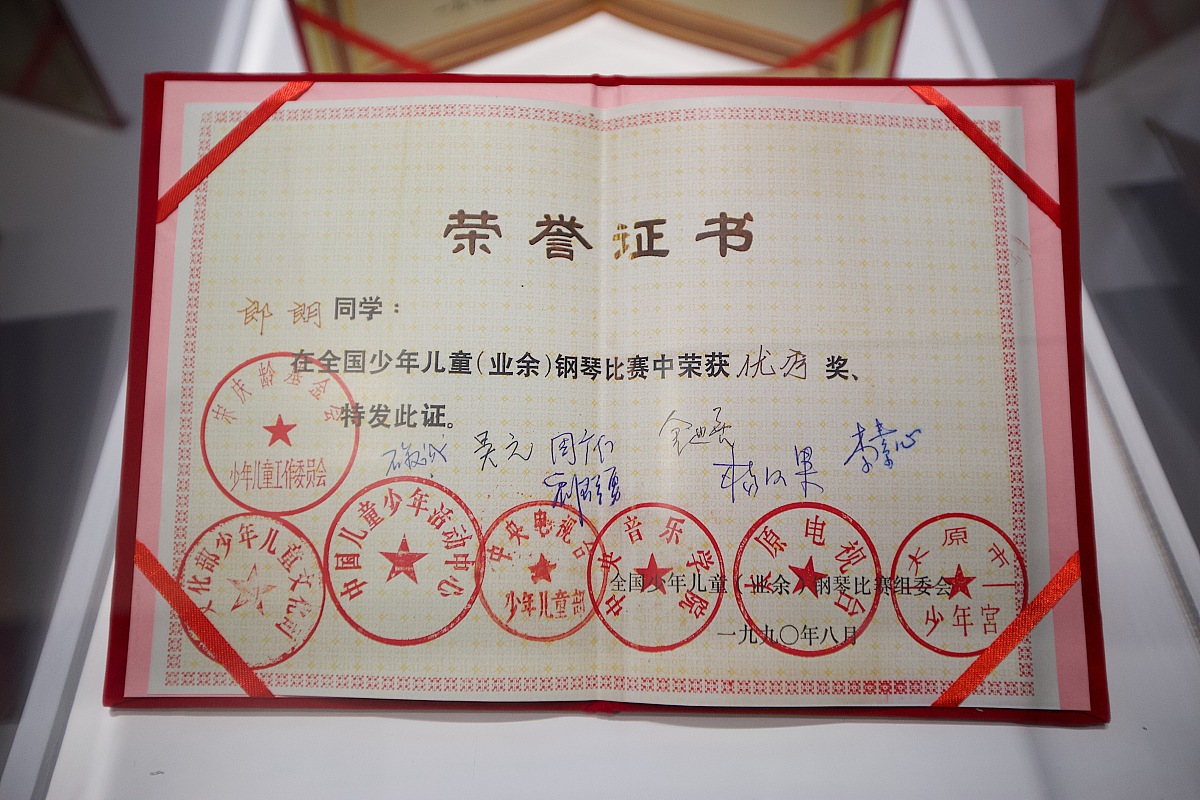 荣誉证书
郎朗同学：
在全国少年儿童(业余)钢琴比赛中荣获优秀奖、
特发此证。
宋庆龄基金会
少年儿童工作委员会
吴元 周广仁
李素心
文化部少年儿童文化司
中国儿童少年活动中心
中央电视台
少年儿童部
中央音乐学院
太原电视台
太原市
少年宫
全国少年儿童(业余)钢琴比赛组委会
一九九〇年八月